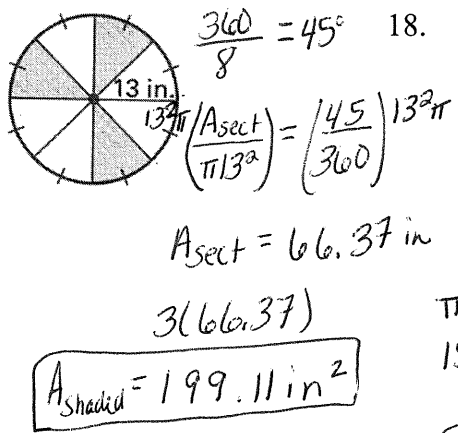 360/8 = 45° 18.
13 in.
13²π (A sect / π13²) = (45/360) 13²π
A sect = 66.37 in
3(66.37)
π
A shaded = 199.11 in²